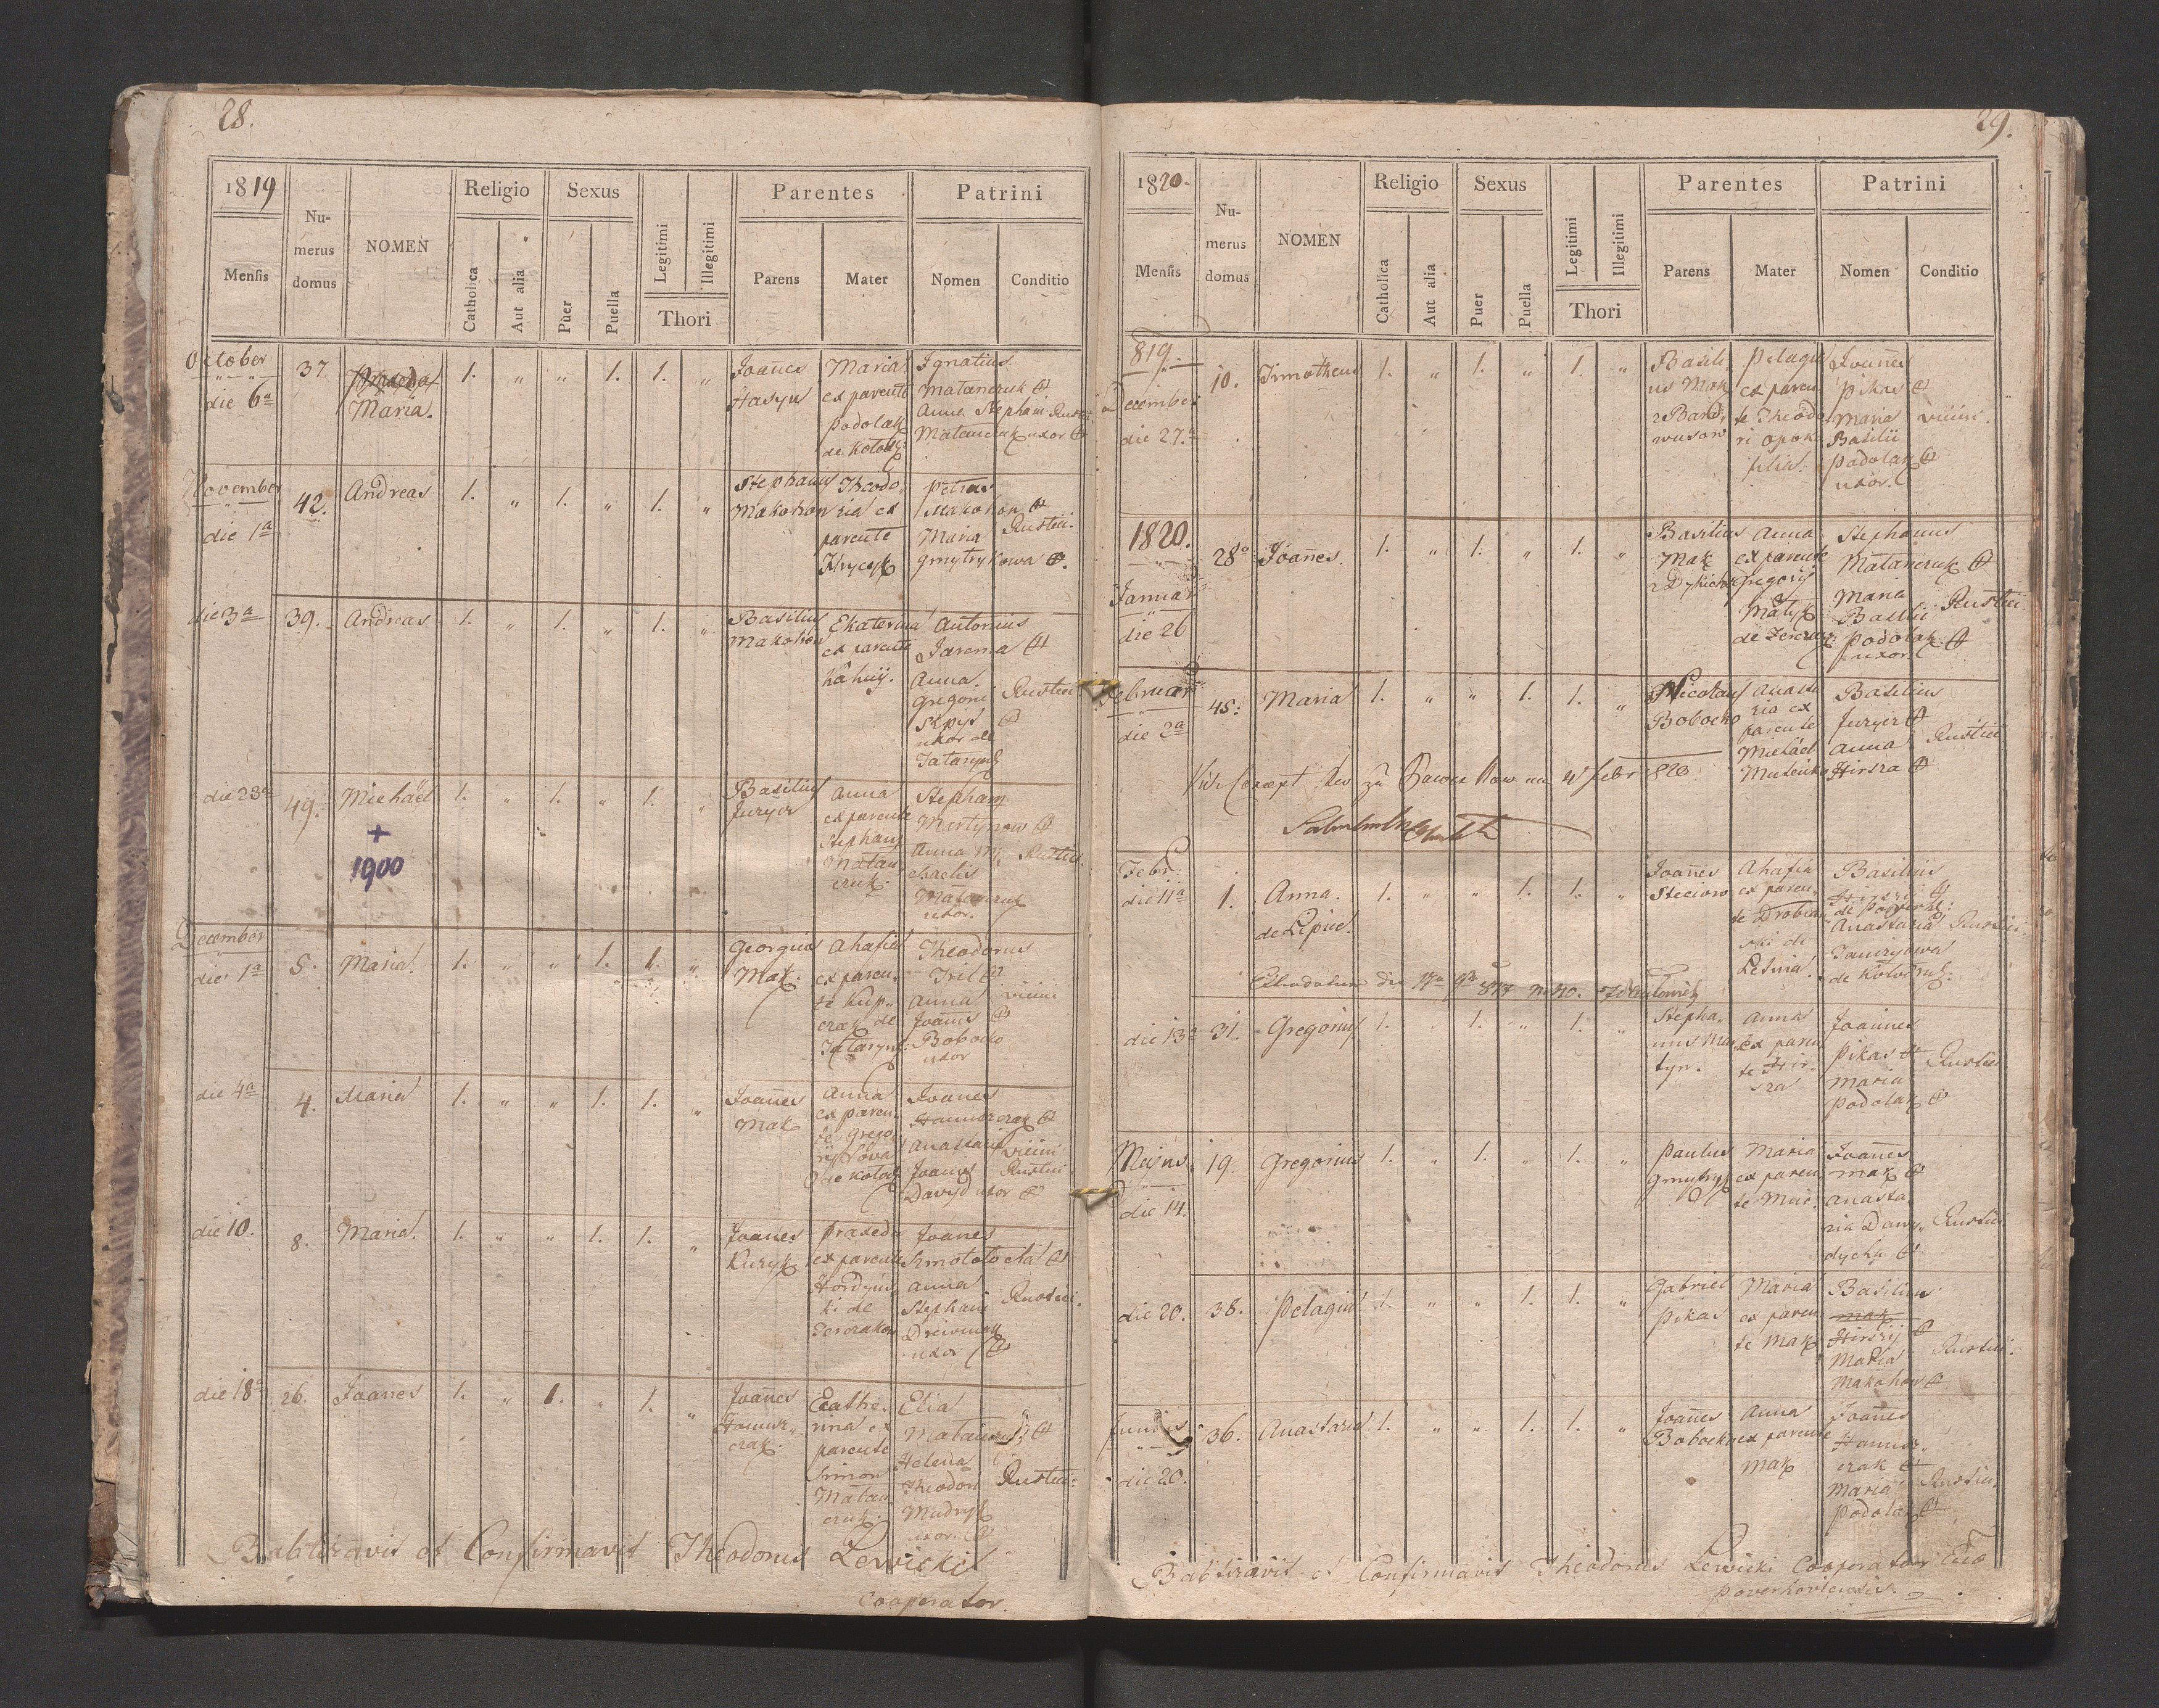 28.
1819
Mensis
Nu-
merus
domus
NOMEN
Religio
Catholica
Aut alia
Sexus
Puer
Puella
Legitimi
Illegitimi
Thori
Parentes
Parens
Mater
Patrini
Nomen
Conditio
October
die 6a
37
Maria.
1. " " 1. 1. "
Joañes
Hasyn
Maria
ex parente
Podolak
de Kolodr:
Ignatius
Matanczuk
Anna Stephani
Matanczuk uxor
Rustici
November
die 1a
42.
Andreas
1. " 1. " 1. "
Stephanus
Makohon
Theodo-
ria ex
parente
Hrycyk
Petrus
Makohon
Maria
Gmytrykowa
Rustici.
die 3a
39.
Andreas
1. " 1. " 1. "
Basilius
Makohon
Ekaterina
ex parente
Hahuy.
Antonius
Jarema
Anna
Gregorii
Skpys
uxor de
Tatarynk
Rustici
die 23a
49.
Michäel
+
1900
1. " 1. " 1. "
Basilius
Juryer
Anna
ex parente
Stephany
Matan-
czuk.
Stephan
Martynow
Anna Mi-
chaelis
Matanczuk
uxor.
Rustici.
December
die 1a
5.
Maria.
1. " " 1. 1. "
Georgius
Mak.
Ahafia
ex paren-
te Kup-
czak de
Tatarynk:
Theodorus
Tril
Anna
Joannis
Bobocko
uxor
vicini
die 4a
4.
Maria
1. " " 1. 1. "
Joañes
Mak
Anna
ex paren-
te Grego-
Joanes
Hanuszczak
Anastasia
Joannis
Dawyd uxor
vicini
Rustici
die 10.
8.
Maria.
1. " " 1. 1. "
Joanes
Kuzyk
Praxeda
ex parente
Hordyns-
ki de
Joanes
Smotolocha
Anna
Stephani
uxor
Rustici.
die 18a
26.
Joannes
1. " 1. " 1. "
Joañes
Hanusz-
czak.
Ecathe-
rina ex
parente
Simon
Matan-
czuk.
Elia
Matanczuk
Helena
Theodori
Mudryk
uxor.
Rustici:
Babtizavit et Confirmavit Theodorus Lewicki
Cooperator.
29.
1820.
Mensis
Nu-
merus
domus
NOMEN
Religio
Catholica
Aut alia
Sexus
Puer
Puella
Legitimi
Illegitimi
Thori
Parentes
Parens
Mater
Patrini
Nomen
Conditio
819.
December
die 27.a
10.
Timotheus
1. " 1. " 1. "
Basili-
us Mak
Pelagia
ex paren-
te Theodo-
ri Opoka
filia.
Joañes
Pikas
Maria
Basilii
Podolak
uxor.
vicini.
1820.
Januar
die 26
28
Joañes.
1. " 1. " 1. "
Basilius
Mak
Anna
ex parente
Gregorij
Matyk
Stephanus
Matanczuk
Maria
Basilii
Podolak
uxor.
Rustici.
Februar
die 2a
45.
Maria
1. " " 1. 1. "
Nicolaus
Bobocko
Anasta-
zia ex
parente
Michäel
Basilius
Juryer
Anna
Hirsza
Rustici
Febr:
die 11a
1.
Anna.
de Lipie.
1. " " 1. 1. "
Joañes
Steciow
Ahafia
ex paren-
te Drobian-
ski de
Letnia.
Basilius
de Powerhl:
Anastasia
de Kolodrub:
Rustici.
die 13a
31.
Gregorius
1. 1. " 1. "
Stepha-
nus Mar-
tyn.
Anna
ex paren-
te Hir-
sza
Joannes
Pikas
Maria
Podolak
Rustici
Majus
die 14.
19.
Gregorius
1. " 1. " 1. "
Paulus
Gmytryk
Maria
ex paren-
te Mac.
Joañes
Mak
Anasta-
zia Dawy-
dycha
Rustici
die 20.
38.
Pelagia
1. " " 1. 1. "
Gabriel
Pikas
Maria
ex paren-
te Mak
Basilius
Mak
Hirszij
Maria
Makohon
Rustici.
Junius
die 20.
36.
Anastasia
1. " " 1. 1. "
Joañes
Bobocko
Anna
ex parente
Mak
Joañes
Hanusz-
czak
Maria
Podolak
Rustici.
Babtizavit et Confirmavit Theodorus Lewicki Cooperator
Powerhoviensis.